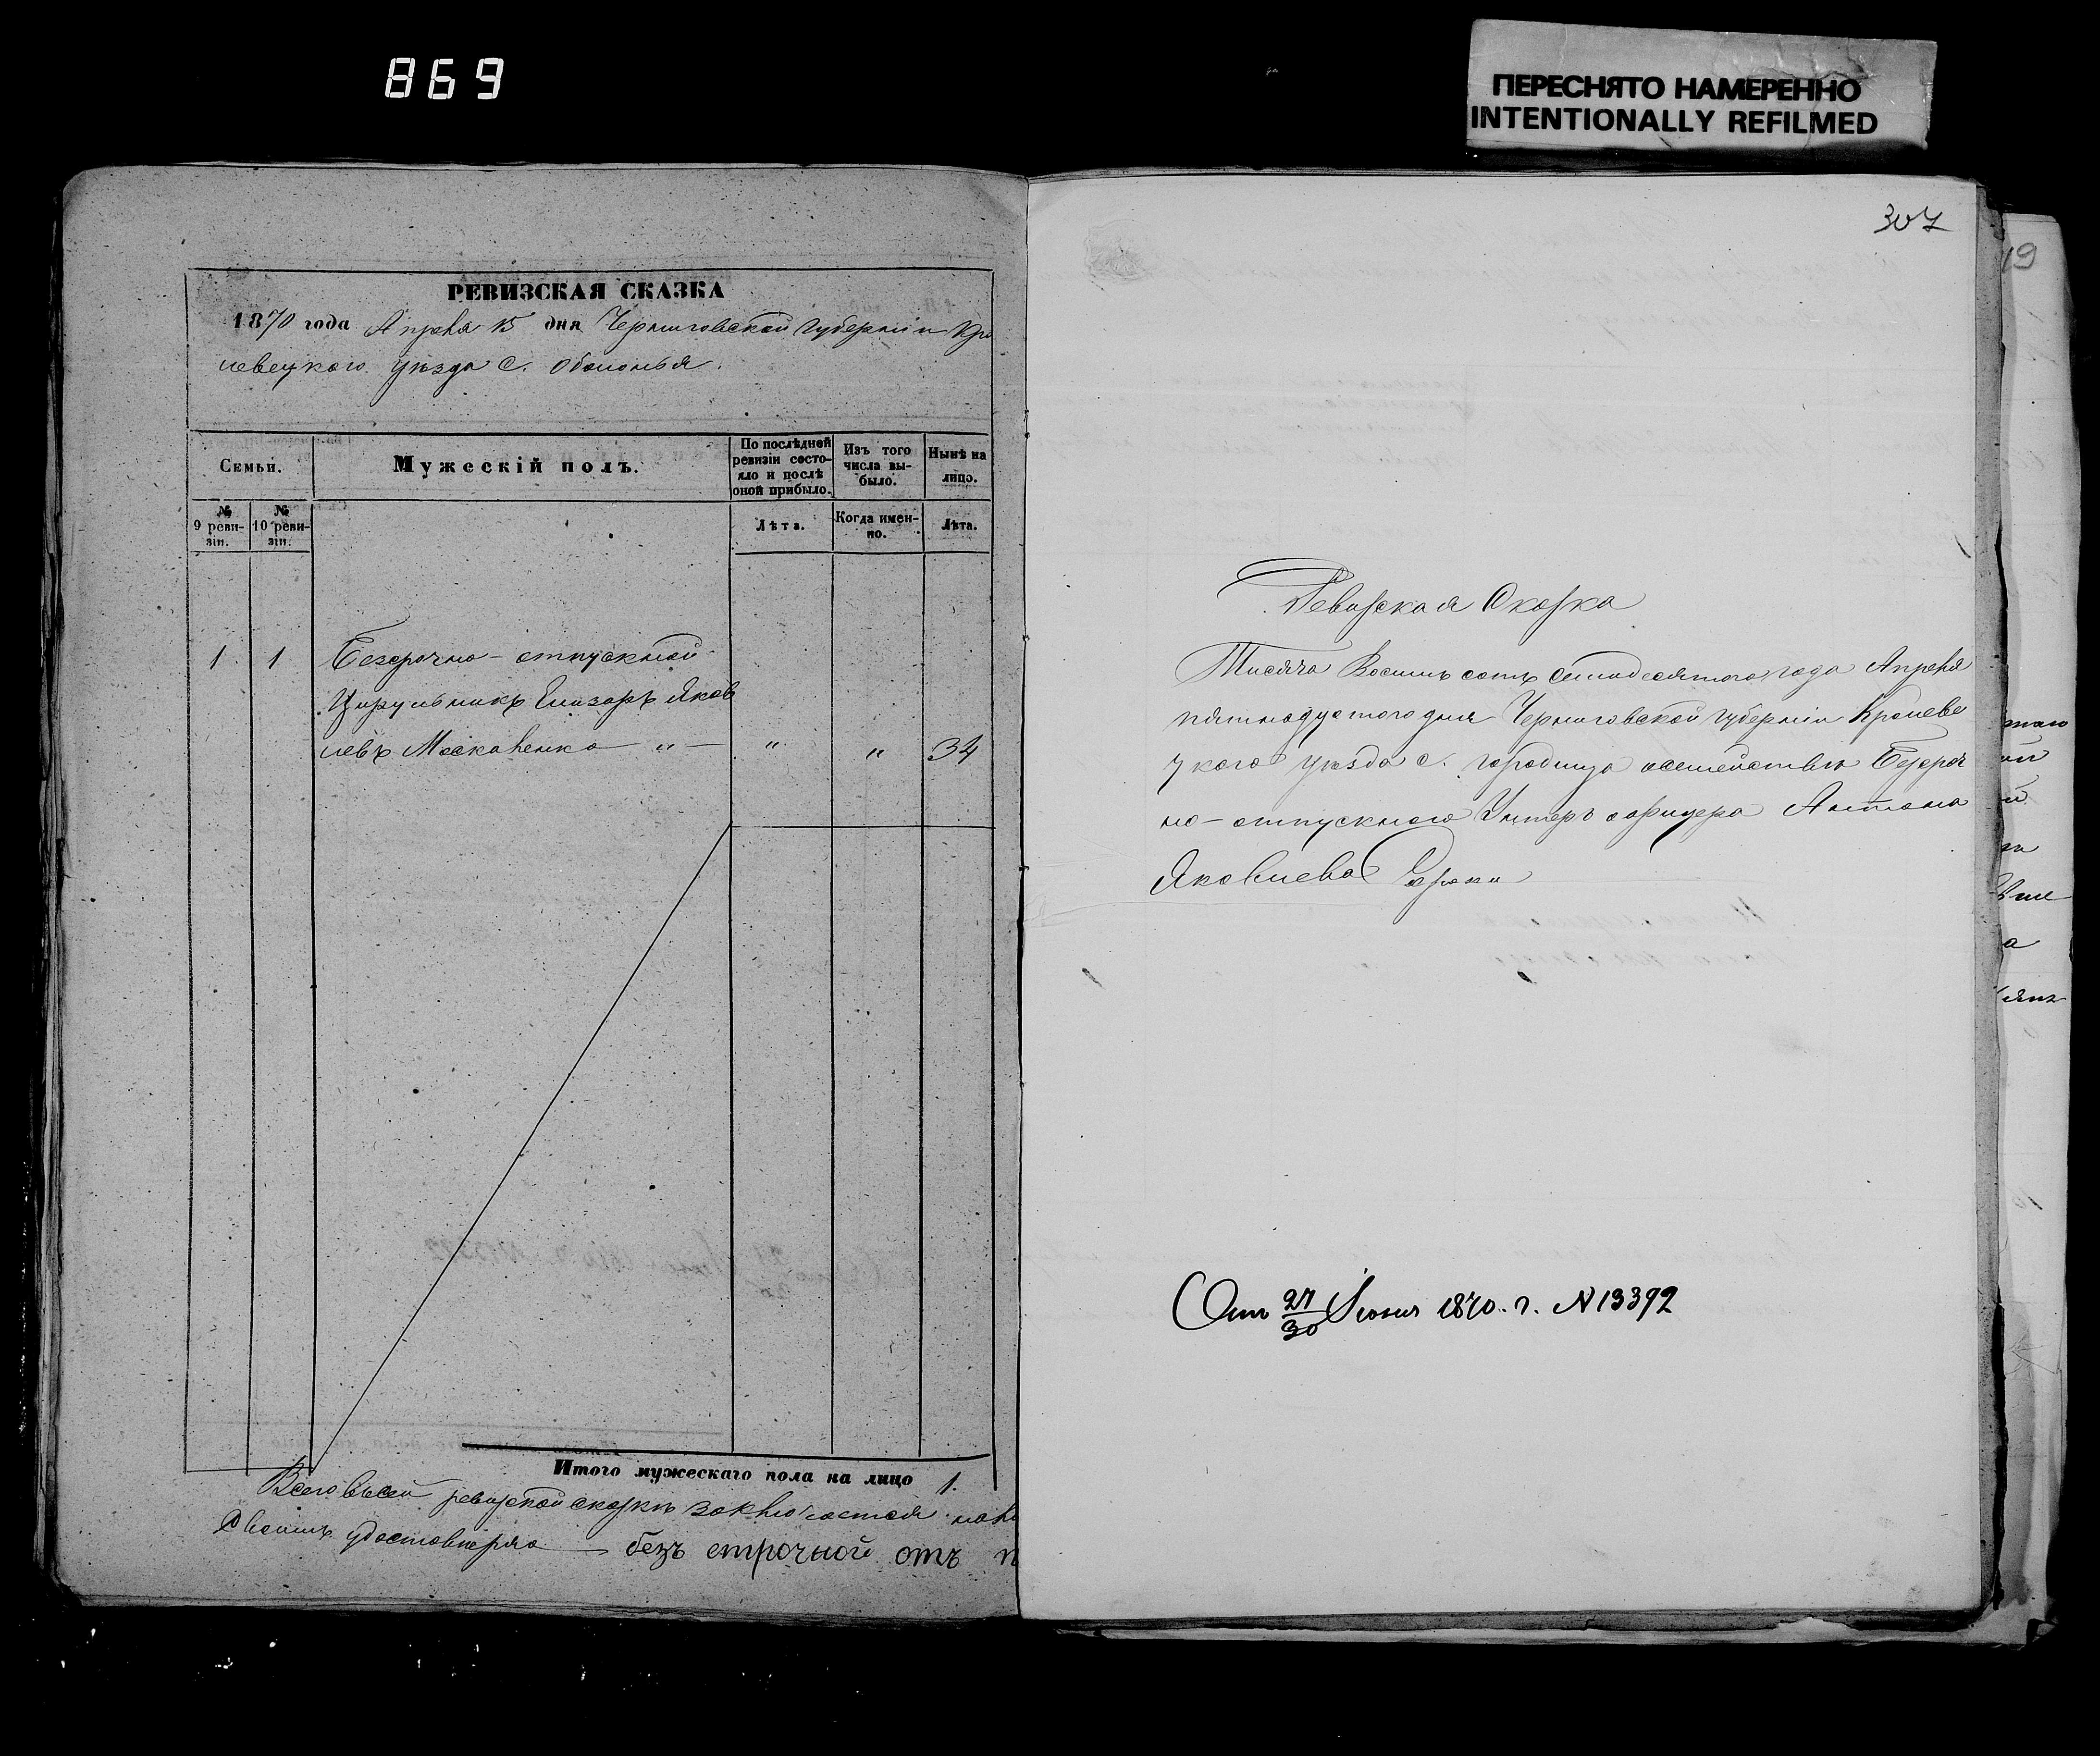 869
ПЕРЕСНЯТО НАМЕРЕННО
INTENTIONALLY REFILMED
РЕВИЗСКАЯ СКАЗКА
1870 года Апреля 15 дня Черниговской губерніи Кро
левецкого уѣзда с. Оболонья.
Семьи.
Мужескій полъ.
По послѣдней
ревизіи состо-
яло и послѣ
оной прибыло.
Изъ того
числа вы-
было.
Нынѣ на
лицо.
№
9 реви-
зіи.
№
10 реви-
зіи.
Лѣта.
Когда имен-
но.
Лѣта.
1 1 Безсрочно-отпускной
Цирульникъ Елизаръ Яков
левъ Москаленко " — " " 34
Итого мужескаго пола на лицо 1.
Всего в сей ревизской сказкѣ заключается
удостовѣряю — безъ строчной отъ п
307
Ревизская Сказка
Тисяча Восимь сотъ семидесятого года Апреля
пятнадцатого дня Черниговской губерніи Кролеве
цкого уѣзда с. Городища о семействѣ Безсроч
но-отпускного Унтеръ офицера Антона
Яковлева
Отъ 27/30 Іюня 1870. г. № 13392
19